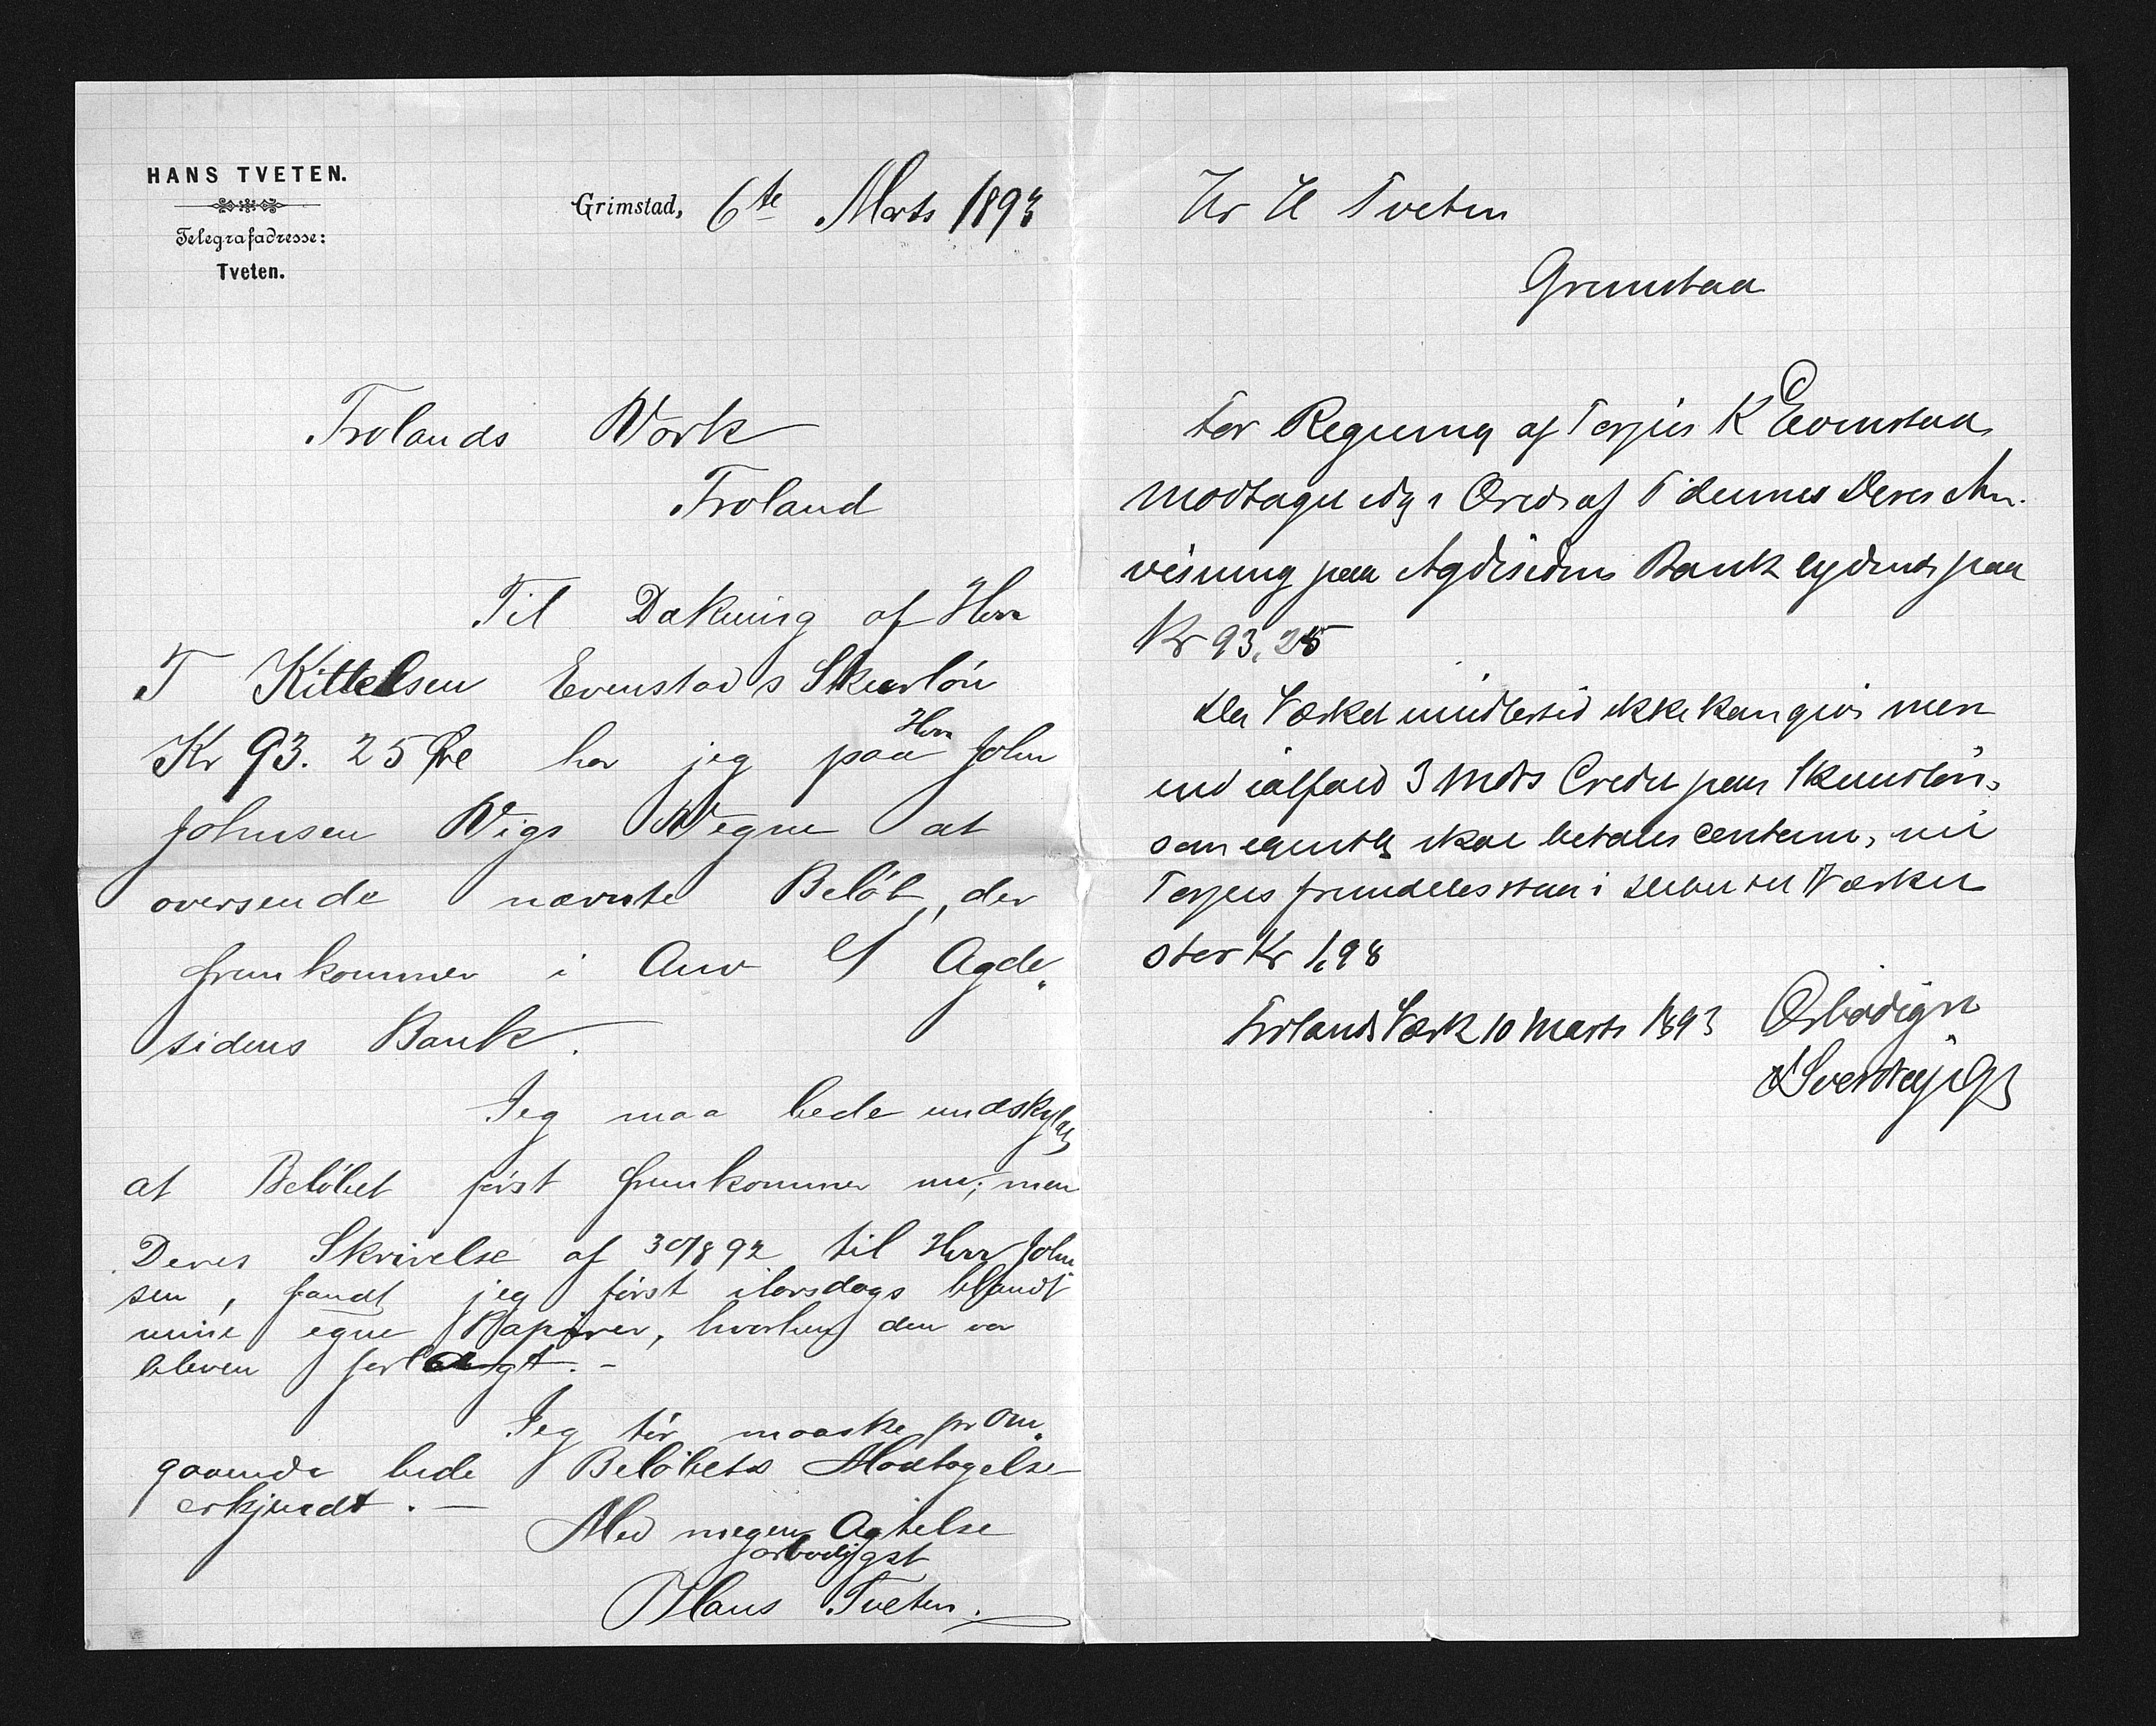 HANS TVETEN.
Telegrafadresse:
Tveten.
Grimstad, 6te Marts 1893
Frolands Værk
Froland
Til Dækning af Herr
T Kittelsen Evenstad s Skurløn
Kr 93. 25 Øre har jeg paa Herr John
Johnsen Vigs Vegne at
oversende nævnte Beløb, der
fremkommer i Anv S/ Agde„
sidens Bank.
Jeg maa bede undskyldt
at Beløbet først fremkommer nu; men
Deres Skrivelse af 30/8 92 til Herr John„
sen, fandt jeg først itorsdags blandt
mine egne Papirer, hvorhen den var
bleven forlagt. –
Jeg tør maaske pr Om„
gaaende bede Beløbets Modtagelse
erkjendt. –
Med megen Agtelse
ærbødigst
Hans Tveten.
Hr H Tveten
Grimstad
For Regning af Terjes K Evenstad
modtaget idag i Brev af 6 dennes Deres An„
visning paa Agdesidens Bank lydende paa
Kr 93,25
Da Værket imidlertid ikke kan give mere
end ialfald 3 Mdrs Credit paa Skurløn,
som egentlig skal betales contant, vil
Terjes fremdeles staa i Debet til Værket
stor Kr 1,98
Frolands Værk 10 Marts 1893 Ærbødigst